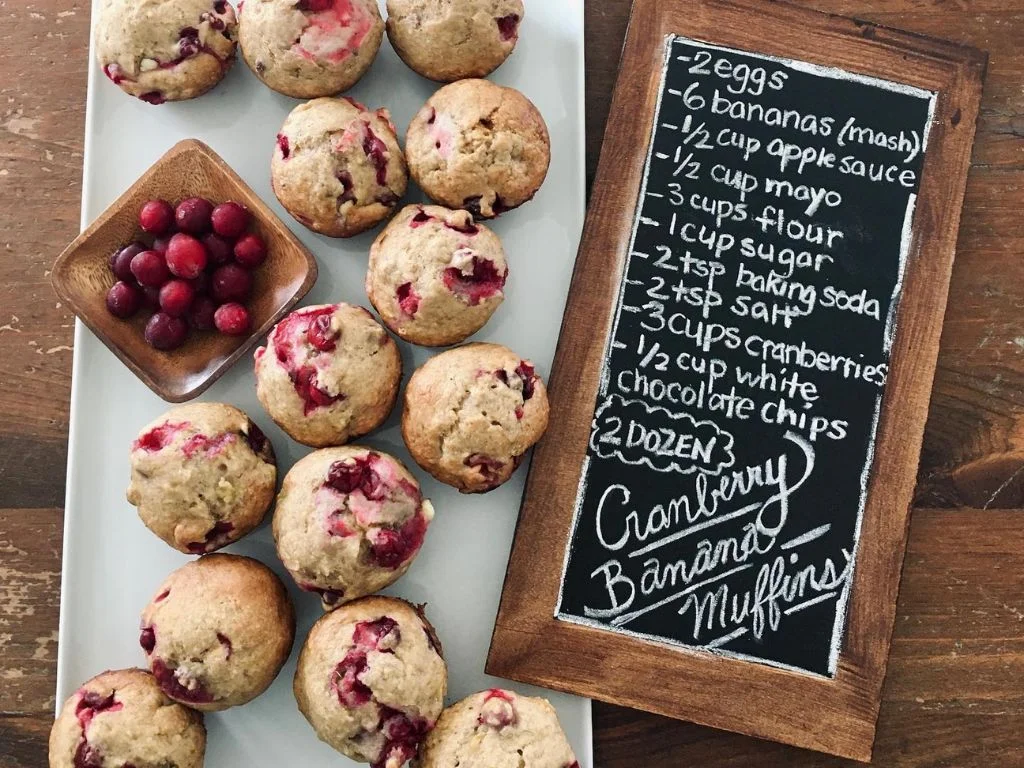 -2eggs
-6 bananas (mash)
-1/2 cup applesauce
-1/2 cup mayo
-3 cups flour
-1cup sugar
-2tsp baking soda
-2tsp salt
-3cups cranberries
-1/2 cup white
chocolate chips
2 DOZEN
Cranberry
Banana
Muffins